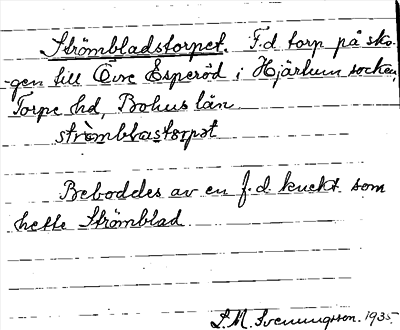 Strömbladstorpet. F.d torp på sko-
gen till Övre Esperöd i Hjärtum socken,
Torpe hd, Bohus län
strömblastorpet
Beboddes av en f.d. knekt som
hette Strömblad
L.M. Svenungsson. 1935.